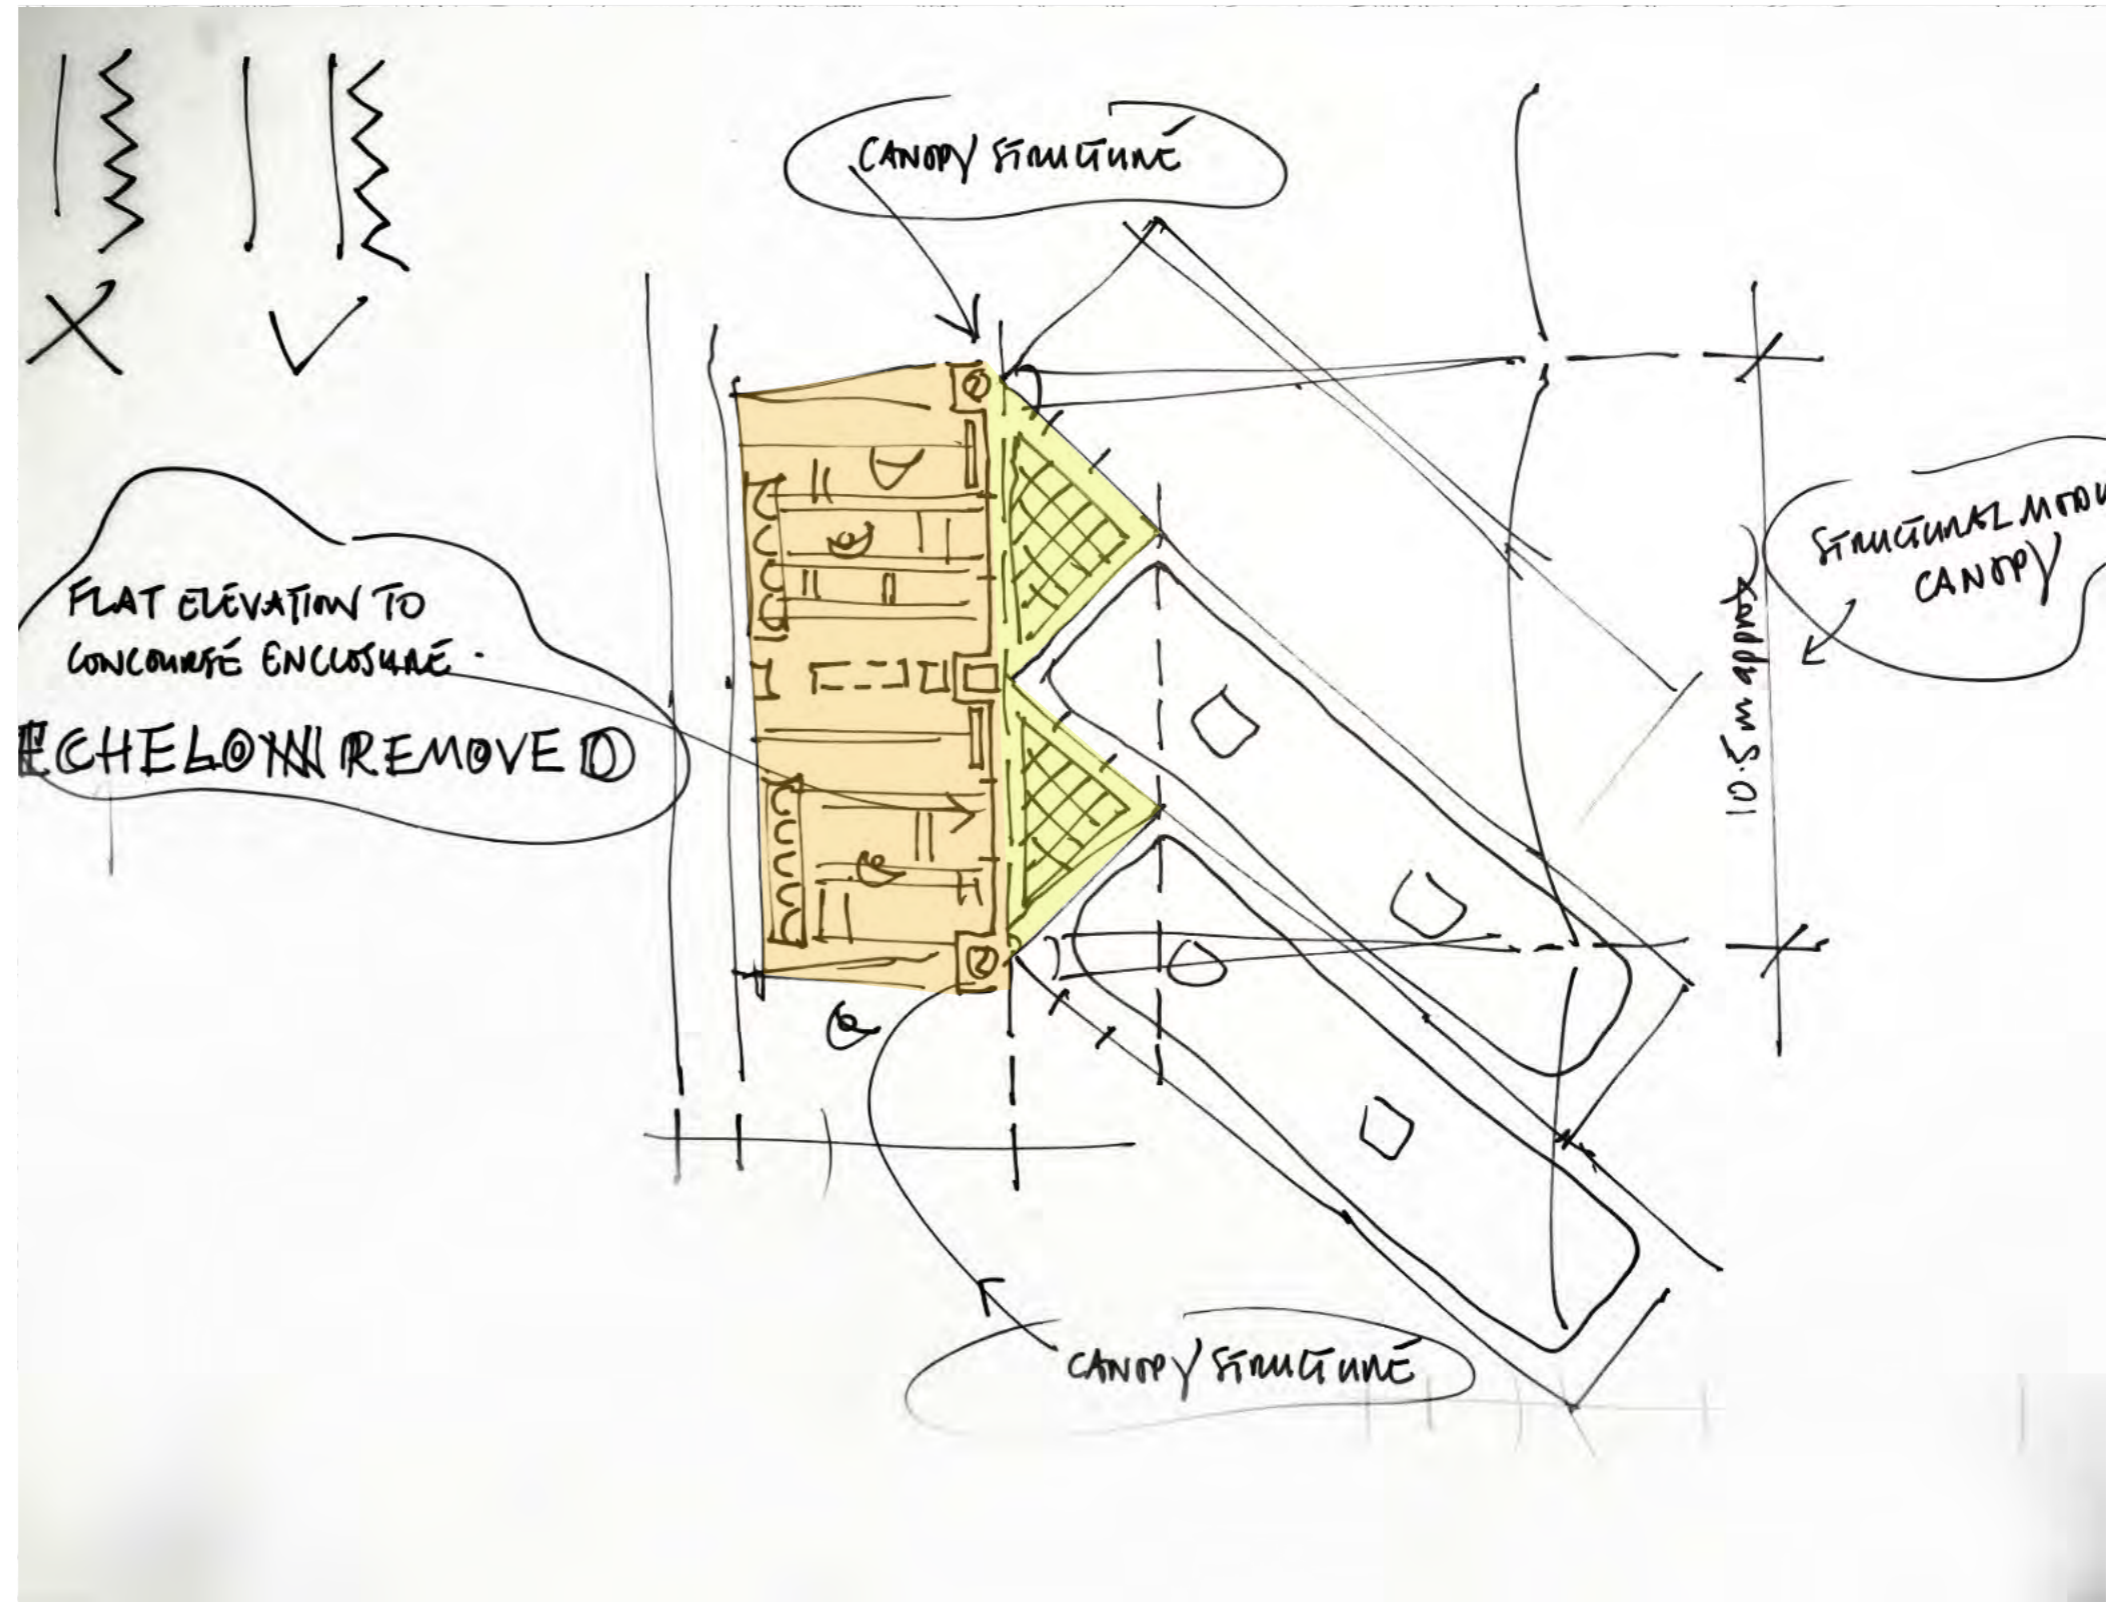 CANOPY STRUCTURE
FLAT ELEVATION TO
CONCOURSE ENCLOSURE.
ECHELON REMOVED
STRUCTURAL MODU
CANOPY
10.5m approx
CANOPY STRUCTURE